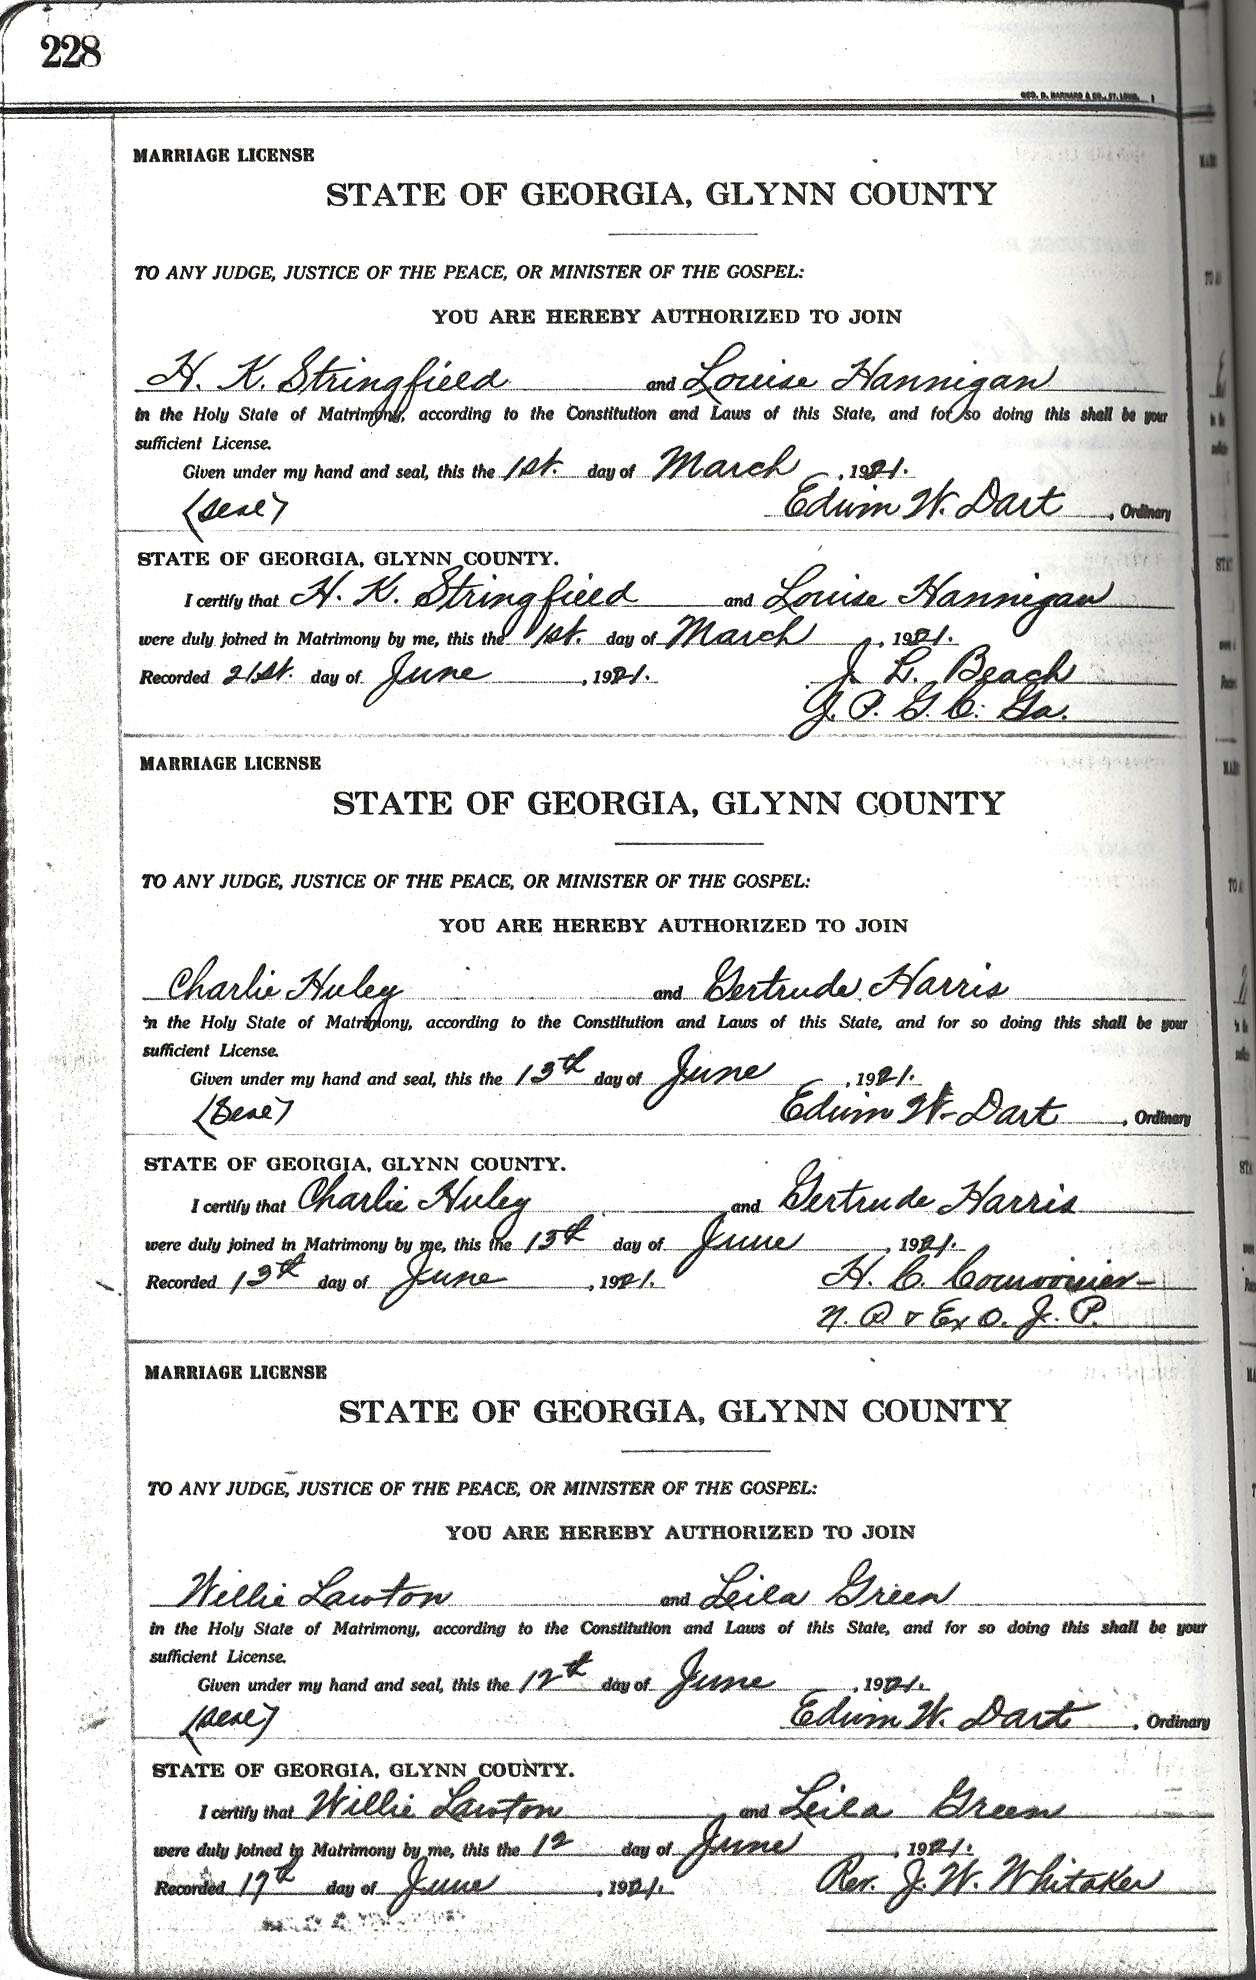 228
GEO. D. BARNARD & CO., ST. LOUIS.
MARRIAGE LICENSE
STATE OF GEORGIA, GLYNN COUNTY
TO ANY JUDGE, JUSTICE OF THE PEACE, OR MINISTER OF THE GOSPEL:
YOU ARE HEREBY AUTHORIZED TO JOIN
H. K. Stringfield and Louise Hannigan
in the Holy State of Matrimony, according to the Constitution and Laws of this State, and for so doing this shall be your
sufficient License.
Given under my hand and seal, this the 1st. day of March, 1921.
(Seal) Edwin W. Dart, Ordinary
STATE OF GEORGIA, GLYNN COUNTY.
I certify that H. K. Stringfield and Louise Hannigan
were duly joined in Matrimony by me, this the 1st. day of March, 1921.
Recorded 21st. day of June, 1921. J. L. Beach
J. P. G. C. Ga.
MARRIAGE LICENSE
STATE OF GEORGIA, GLYNN COUNTY
TO ANY JUDGE, JUSTICE OF THE PEACE, OR MINISTER OF THE GOSPEL:
YOU ARE HEREBY AUTHORIZED TO JOIN
Charlie Huley and Gertrude Harris
in the Holy State of Matrimony, according to the Constitution and Laws of this State, and for so doing this shall be your
sufficient License.
Given under my hand and seal, this the 13th day of June, 1921.
(Seal) Edwin W. Dart, Ordinary
STATE OF GEORGIA, GLYNN COUNTY.
I certify that Charlie Huley and Gertrude Harris
were duly joined in Matrimony by me, this the 13th day of June, 1921.
Recorded 13th day of June, 1921. H. C.
N. P. & Ex O. J. P.
MARRIAGE LICENSE
STATE OF GEORGIA, GLYNN COUNTY
TO ANY JUDGE, JUSTICE OF THE PEACE, OR MINISTER OF THE GOSPEL:
YOU ARE HEREBY AUTHORIZED TO JOIN
Willie Lawton and Leila Green
in the Holy State of Matrimony, according to the Constitution and Laws of this State, and for so doing this shall be your
sufficient License.
Given under my hand and seal, this the 12th day of June, 1921.
(Seal) Edwin W. Dart, Ordinary
STATE OF GEORGIA, GLYNN COUNTY.
I certify that Willie Lawton and Leila Green
were duly joined in Matrimony by me, this the 12 day of June, 1921.
Recorded 17th day of June, 1921. Rev. J. W. Whitaker